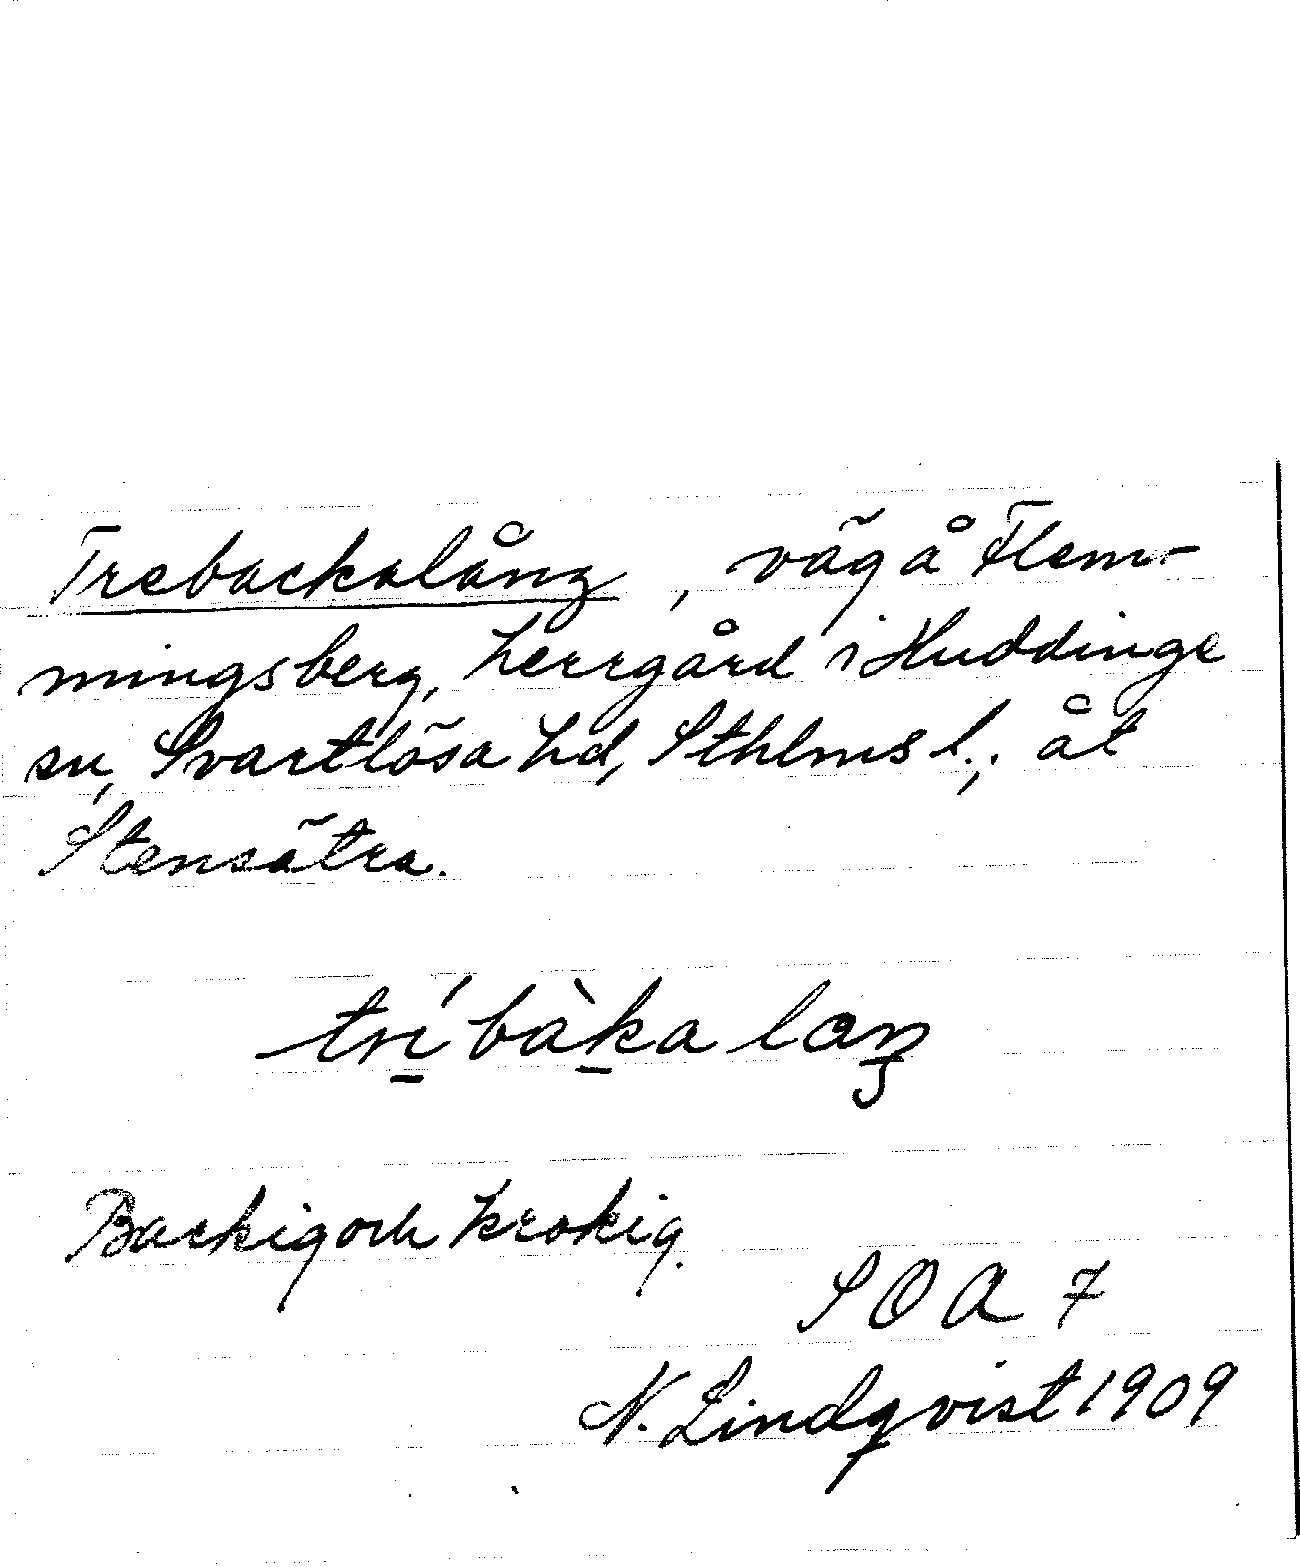 Trebackalång, väg å Flem-
mingsberg, herrgård i Huddinge
sn, Svartlösa hd, Sthlms l.; åt
Stensätra.
trí bàka laŋ
Backig och krokig.
SOA 7
N. Lindqvist 1909